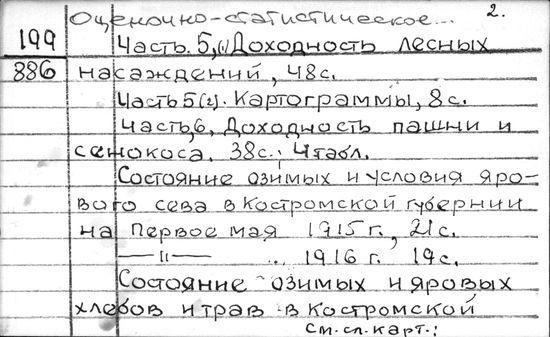 Оценочно-статистическое... 2.
199 Часть. 5,(1) Доходность лесных
886 насаждений, 48с.
Часть 5(2). Картограммы, 8с.
Часть, 6, Доходность пашни и
сенокоса. 38с.; 4табл.
Состояние озимых и условия яро-
вого сева в Костромской губернии
на первое мая 1915г., 21с.
—— 〃 —— „ 1916 г. 19с.
Состояние озимых и яровых
хлебов и трав в Костромской
см.сл.карт.: